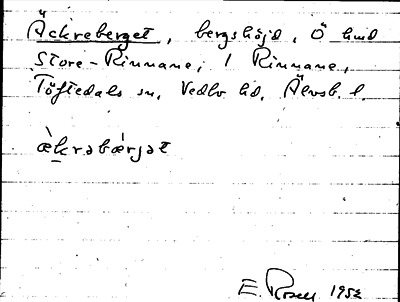 Äckreberget, bergshöjd, Ö hud
Store-Rinnane, / Rinnane,
Töftedals sn, Vedbo hd, Älvsb. l.
æ̀krəbæ̀rjət
E. Rosell 1952